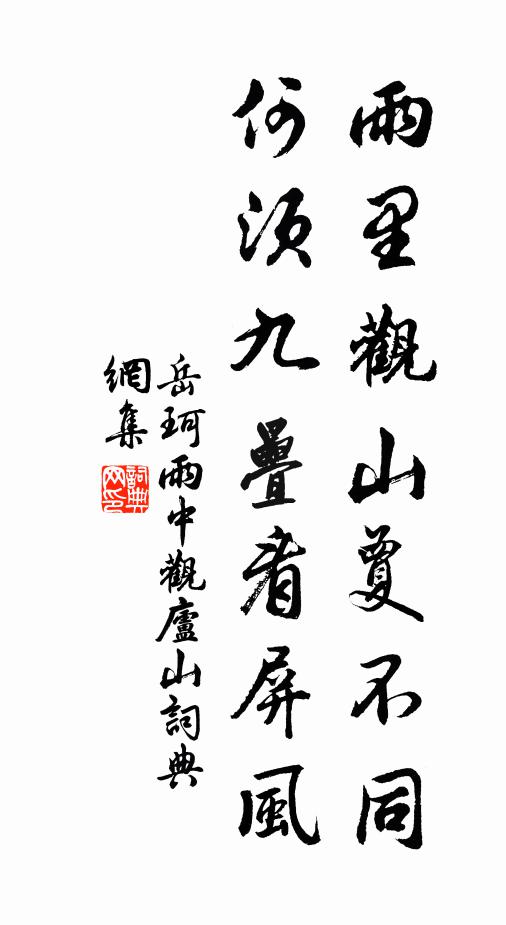 雨里觀山夐不同
何須九疊看屏風
岳珂雨中觀廬山詞典
網集
詞典網印